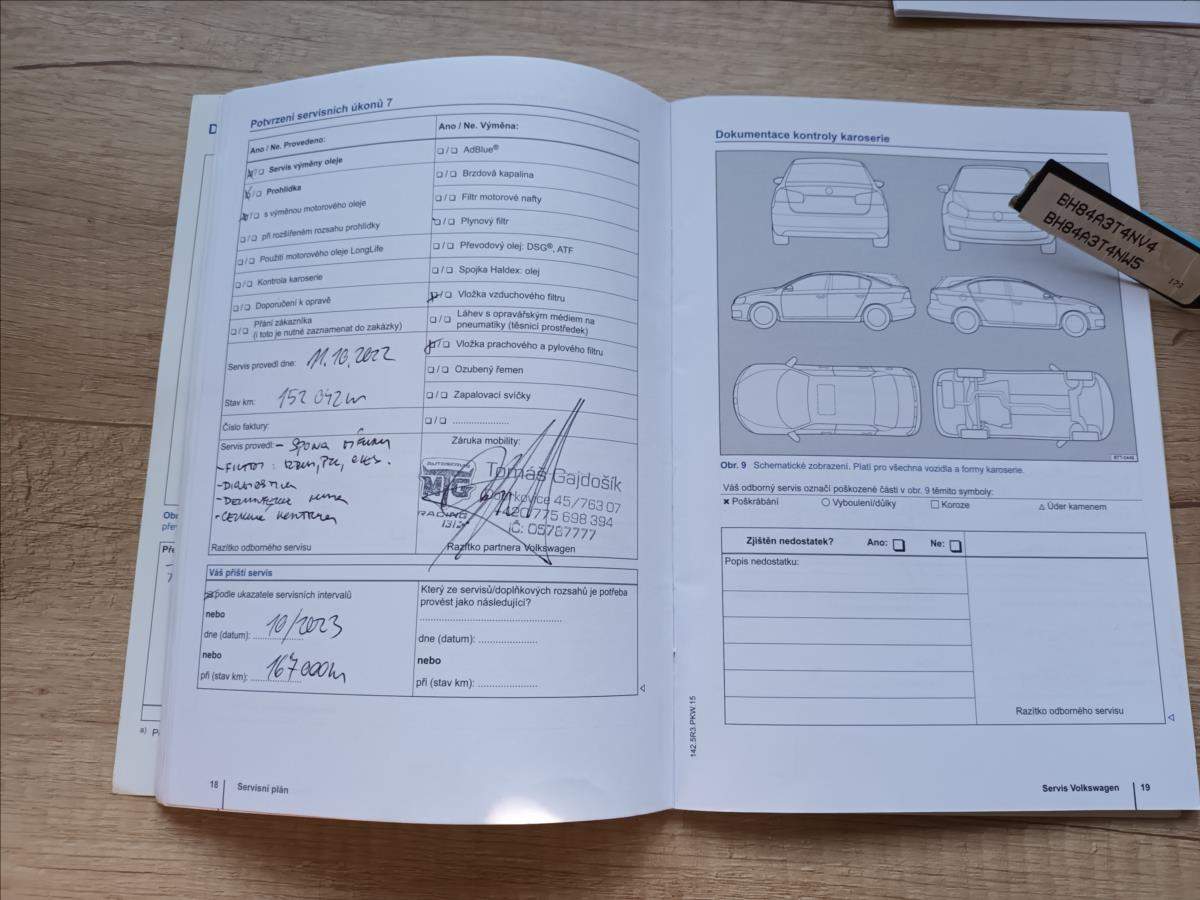 Potvrzení servisních úkonů 7
Ano / Ne. Provedeno:
❑/❑ Servis výměny oleje
❑/❑ Prohlídka
❑/❑ s výměnou motorového oleje
❑/❑ při rozšířeném rozsahu prohlídky
❑/❑ Použití motorového oleje LongLife
❑/❑ Kontrola karoserie
❑/❑ Doporučení k opravě
❑/❑ Přání zákazníka
(i toto je nutné zaznamenat do zakázky)
Servis provedl dne: 11.10.2022
Stav km: 152 042 km
Číslo faktury:
Servis provedl:
- DIAGNOSTIKA
Razítko odborného servisu
Ano / Ne. Výměna:
❑/❑ AdBlue®
❑/❑ Brzdová kapalina
❑/❑ Filtr motorové nafty
❑/❑ Plynový filtr
❑/❑ Převodový olej: DSG®, ATF
❑/❑ Spojka Haldex: olej
❑/❑ Vložka vzduchového filtru
❑/❑ Láhev s opravářským médiem na
pneumatiky (těsnicí prostředek)
❑/❑ Vložka prachového a pylového filtru
❑/❑ Ozubený řemen
❑/❑ Zapalovací svíčky
❑/❑ ......................
Záruka mobility:
MTG
RACING
Tomáš Gajdošík
45/763 07
+420 775 698 394
IČ: 05787777
Razítko partnera Volkswagen
Váš příští servis
podle ukazatele servisních intervalů
nebo
dne (datum): 10/2023
nebo
při (stav km): 167 000 km
Který ze servisů/doplňkových rozsahů je potřeba
provést jako následující?
dne (datum): ......................
nebo
při (stav km): ......................
18
Servisní plán
Dokumentace kontroly karoserie
BH84A3T4NV4
BH84A3T4NW5
179
Obr. 9 Schematické zobrazení. Platí pro všechna vozidla a formy karoserie.
Váš odborný servis označí poškozené části v obr. 9 těmito symboly:
✖ Poškrábání ○ Vyboulení/důlky □ Koroze △ Úder kamenem
Zjištěn nedostatek? Ano: ❑ Ne: ❑
Popis nedostatku:
Razítko odborného servisu
142.5R3.PKW.15
Servis Volkswagen
19